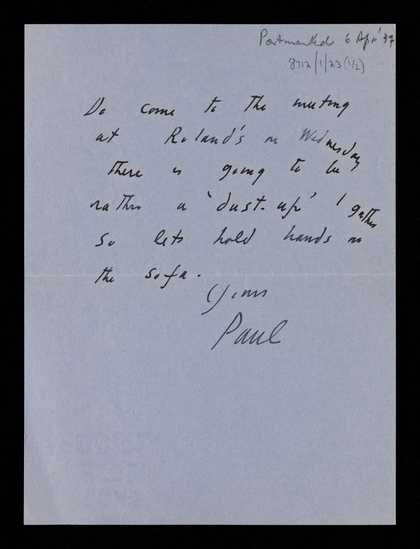 Postmarked 6 Apr '39
8712/1/23 (1/2)
Do come to the meeting
at Roland's on Wednesday
there is going to be
rather a 'dust-up' I gather
so lets hold hands on
the sofa.
Yours
Paul